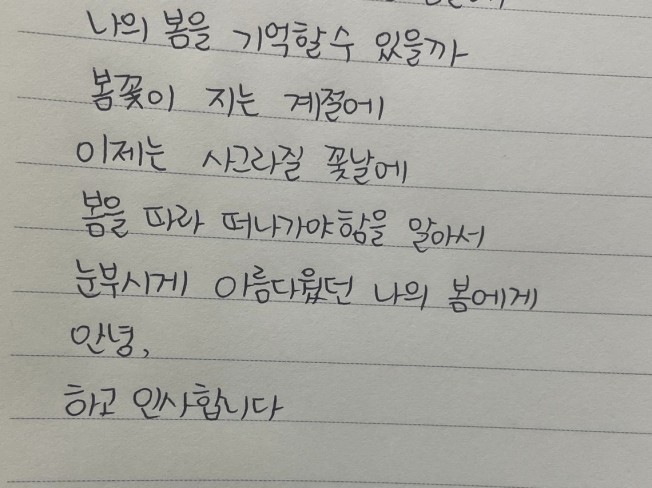 나의 봄을 기억할 수 있을까
봄꽃이 지는 계절에
이제는 사그라질 꽃날에
봄을 따라 떠나가야함을 알아서
눈부시게 아름다웠던 나의 봄에게
안녕,
하고 인사합니다